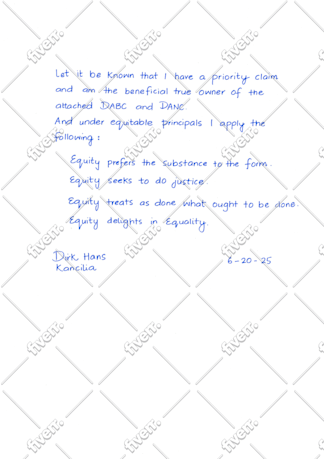 Let it be known that I have a priority claim
and am the beneficial true owner of the
attached DABC and DANC.
And under equitable principals I apply the
following :
Equity prefers the substance to the form.
Equity seeks to do justice.
Equity treats as done what ought to be done.
Equity delights in Equality.
Dirk Hans
Kancilia
6-20-25
fiverr.